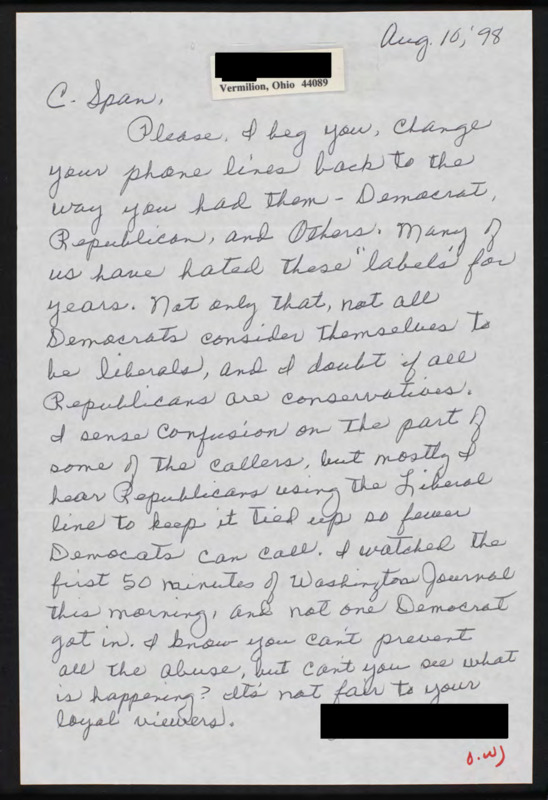 Aug. 10, '98
Vermilion, Ohio 44089
C-Span,
Please, I beg you, change
your phone lines back to the
way you had them - Democrat,
Republican, and Others. Many of
us have hated these "labels" for
years. Not only that, not all
Democrats consider themselves to
be liberals, and I doubt if all
Republicans are conservatives.
I sense confusion on the part of
some of the callers, but mostly I
hear Republicans using the Liberal
line to keep it tied up so fewer
Democats can call. I watched the
first 50 minutes of Washington Journal
this morning, and not one Democrat
got in. I know you can't prevent
all the abuse, but can't you see what
is happening? It's not fair to your
loyal viewers.